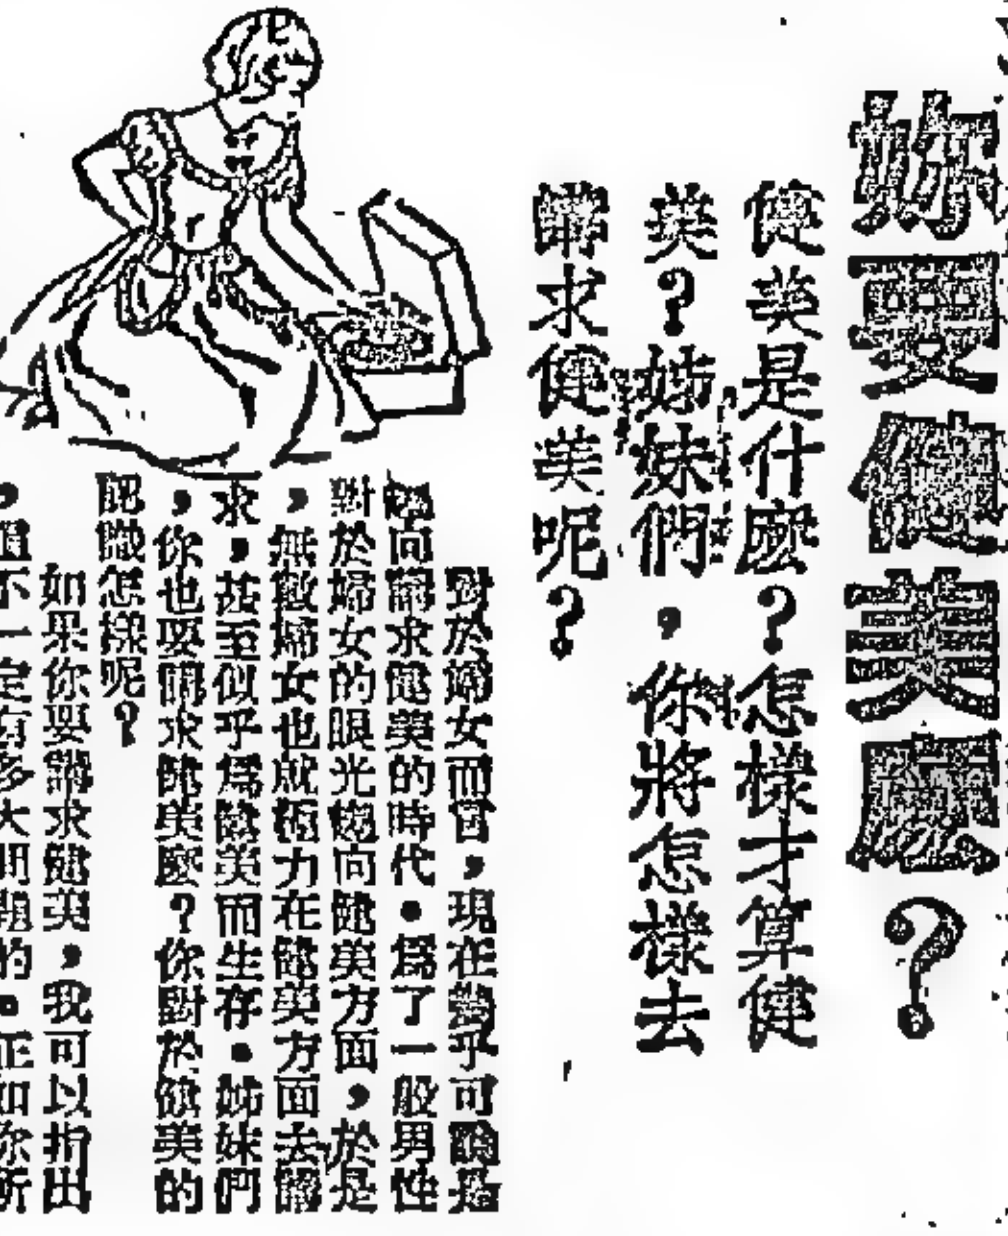 妳要健美麽？
健美是什麽？怎樣才算健
美？姊妹們，你將怎樣去
講求健美呢？
對於婦女而言，現在幾乎可說是
趨向講求健美的時代．爲了一般男性
對於婦女的眼光趨向健美方面，於是
，無數婦女也就極力在健美方面去講
求，甚至似乎爲健美而生存．姊妹們
，你也要講求健美麽？你對於健美的
認識怎樣呢？
如果你要講求健美，我可以指出
，不一定有多大的．正如你所